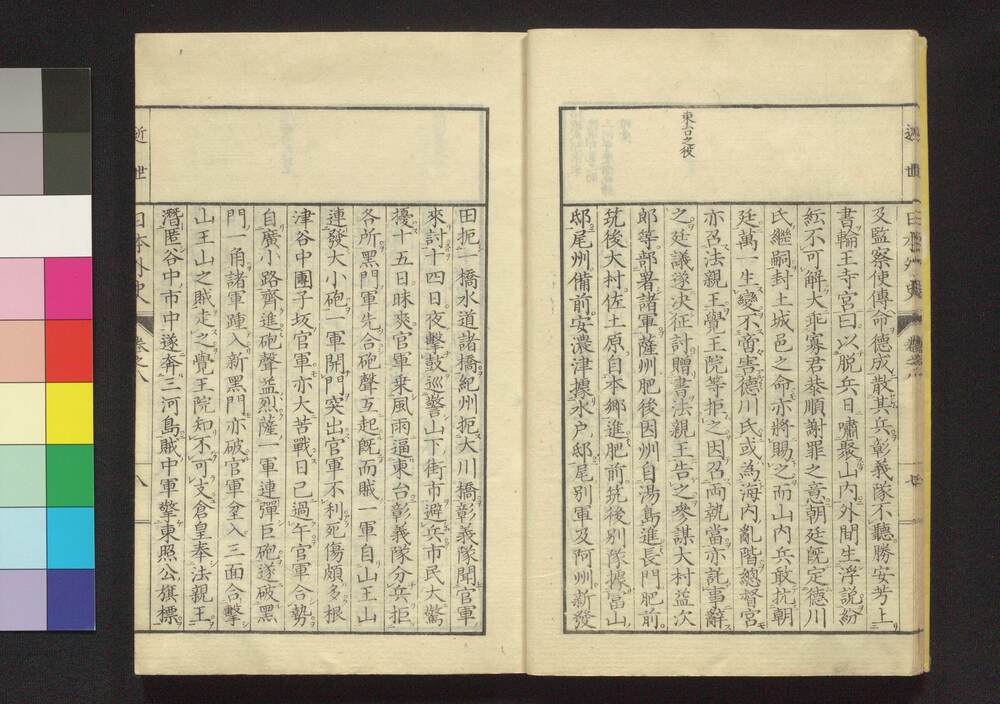 近世日本外史 卷之八 廿
東台之役
及監察使傳命德成散其兵彰義隊不聽勝安芳上
書輪王寺宮曰以脱兵日嘯聚山內外間生浮説紛
紜不可解大乖寡君恭順謝罪之意朝廷既定德川
氏繼嗣封土城邑之命亦將賜之而山內兵敢抗朝
廷萬一生變不啻害德川氏或為海內亂階總督宮
亦召法親王覺王院等拒之因召兩執當亦託事辭
之廷議遂決征討贈書法親王告之參謀大村益次
郎等部署諸軍薩州肥後因州自湯島進長門肥前
筑後大村佐土原自本鄉進肥前筑後別隊據富山
邸尾州備前安濃津據水戶邸尾別軍及阿州新發
田扼一橋水道諸橋紀州扼大川橋彰義隊聞官軍
來討十四日夜擊鼓巡警山下街市避兵市民大驚
擾十五日昧爽官軍乘風雨逼東台彰義隊分兵拒
各所黑門軍先合砲聲互起既而賊一軍自山王山
連發大小砲一軍開門突出官軍不利死傷頗多根
津谷中團子坂官軍亦大苦戰日已過午官軍合勢
自廣小路齊進砲聲益烈薩一軍連彈巨砲遂破黑
門一角諸軍踵入新黑門亦破官軍坌入三面合擊
山王山之賊走之覺王院知不可支倉皇奉法親王
潛匿谷中市中遂奔三河島賊中軍擎東照公旗標
近世日本外史 卷之八 八